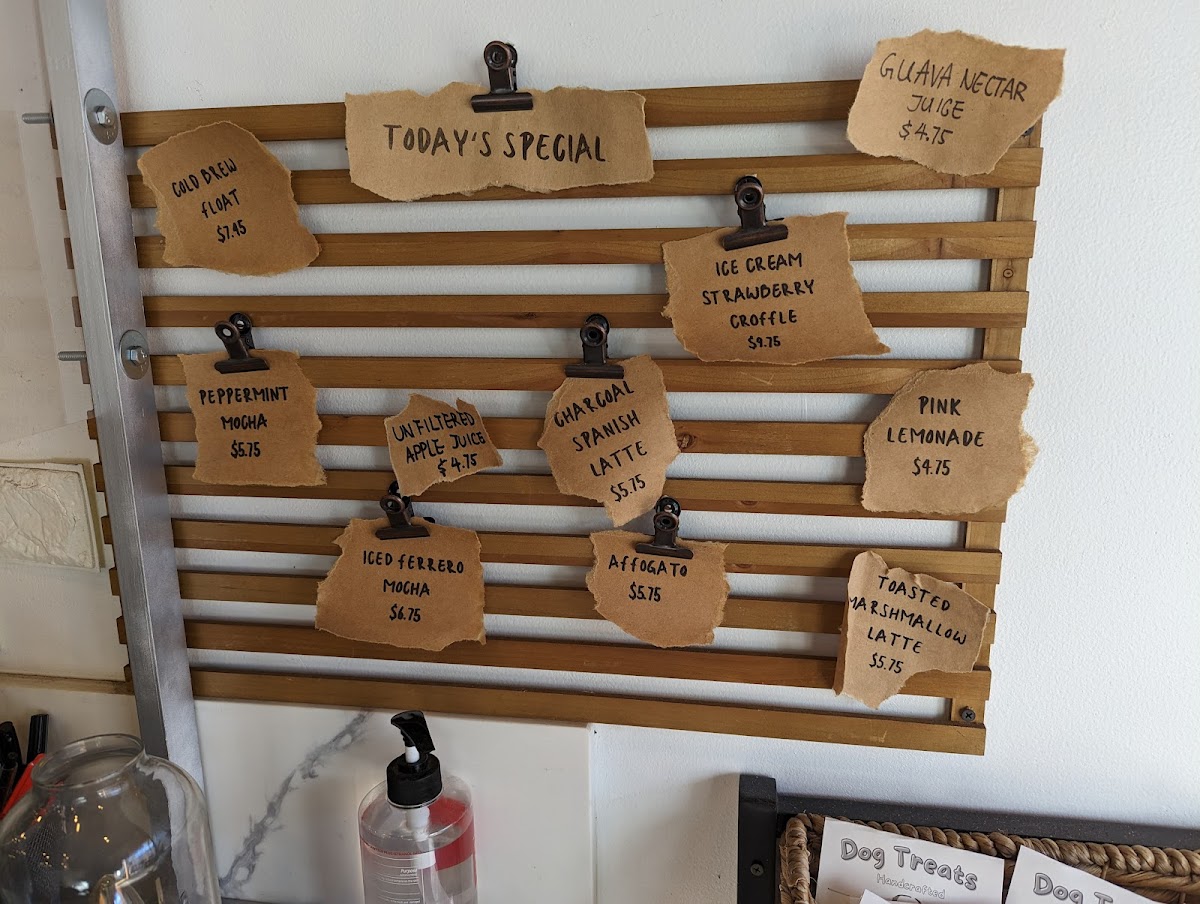 TODAY'S SPECIAL
GUAVA NECTAR
JUICE
$4.75
COLD BREW
FLOAT
$7.45
ICE CREAM
STRAWBERRY
CROFFLE
$9.75
PEPPERMINT
MOCHA
$5.75
UNFILTERED
APPLE JUICE
$4.75
CHARCOAL
SPANISH
LATTE
$5.75
PINK
LEMONADE
$4.75
ICED FERRERO
MOCHA
$6.75
AFFOGATO
$5.75
TOASTED
MARSHMALLOW
LATTE
$5.75
Purpose
Dog Treats
Handcrafted
Dog T